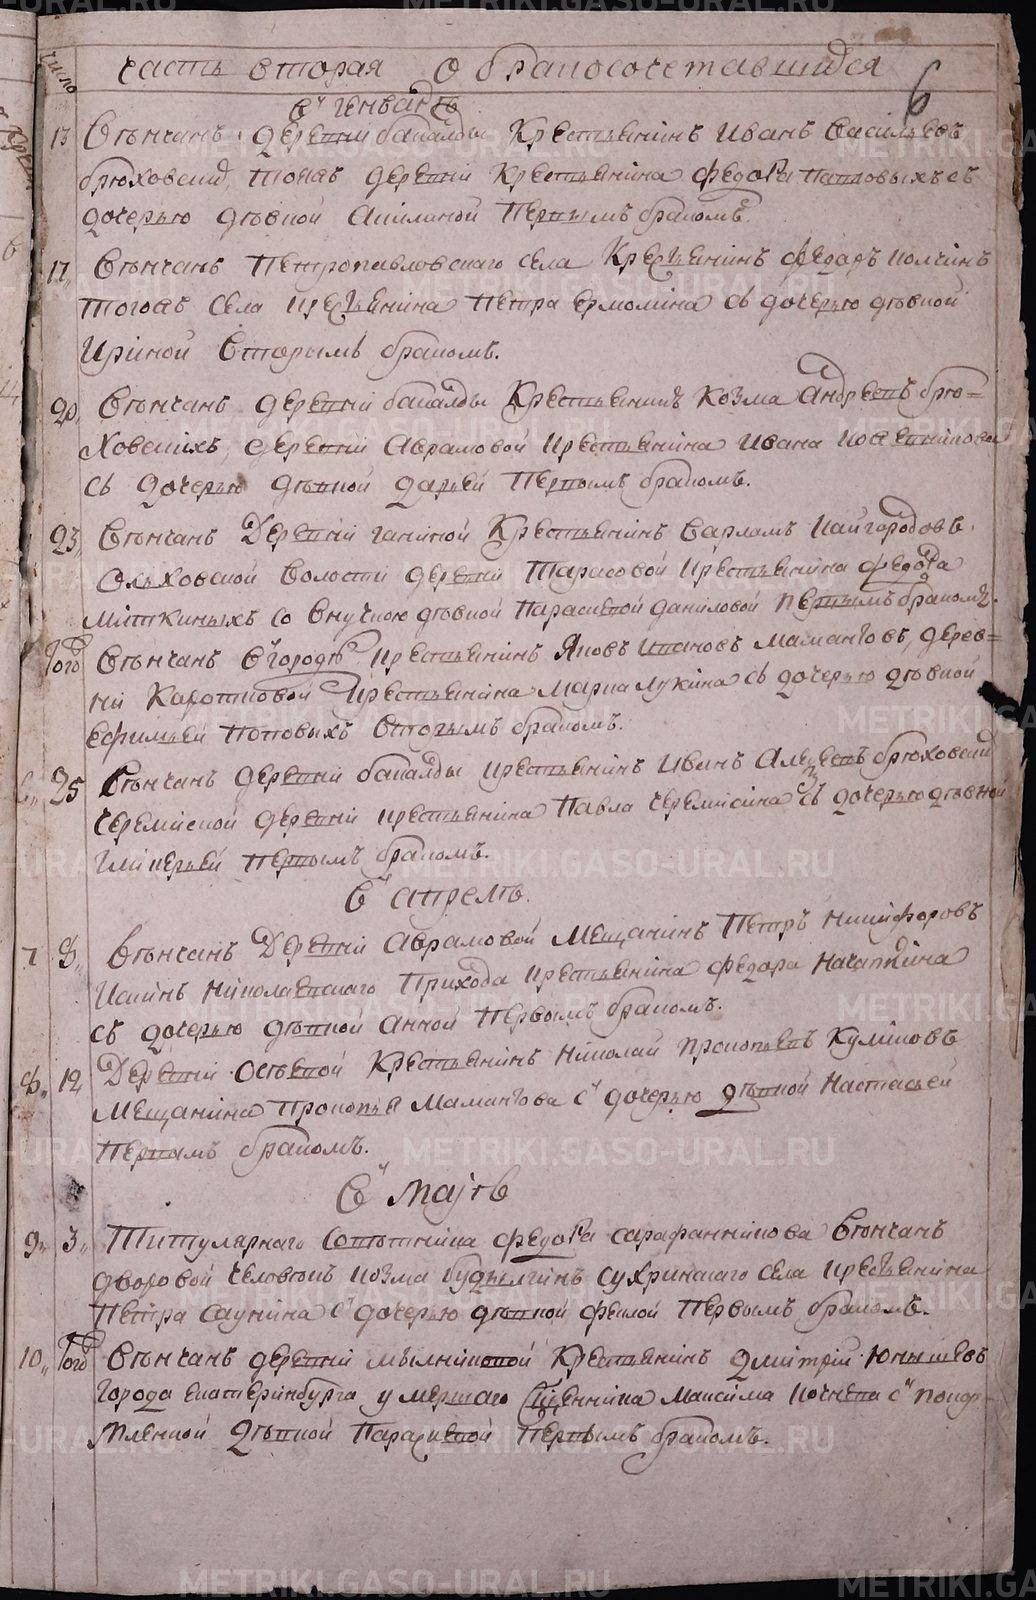 Число
часть вторая о бракосочетавшихся
6
в генваре
13 венчанъ деревни бакалды крестьянинъ Иванъ васильевъ
брюховских, тояжъ деревни крестьянина Федора Павловыхъ съ
дочерью девкой Акилиной первымъ бракомъ.
17 венчанъ Петропавловскаго села крестьянинъ Федоръ
тогожъ села крестьянина Петра Ермолина съ дочерью девкой
Ириной вторымъ бракомъ.
20 венчанъ деревни бакалды крестьянинъ Козма Андреевъ брю=
ховскихъ, деревни Аврамовой крестьянина Ивана
съ дочерью девкой Дарьей первымъ бракомъ.
23 венчанъ деревни ганиной крестьянинъ варламъ Кайгородовъ
ольховской волости деревни Тарасовой крестьянина Федора
миткиныхъ со внучкою девкой Параскевой Даниловой первымъ бракомъ.
того венчанъ в городе крестьянинъ Яковъ Ивановъ Мамангтовъ, дерев=
ни крестьянина Марка Лукина съ дочерью девкой
Ефимьей Поповыхъ вторымъ бракомъ.
25 венчанъ деревни бакалды крестьянинъ Иванъ Алексеевъ брюховских
черемиской деревни крестьянина Павла черемисина съ дочерью девкой
Гликерьей первымъ бракомъ.
в апреле.
7 8 венчанъ деревни Аврамовой мещанинъ Петръ Никифоровъ
Николаевскаго прихода крестьянина Федора
съ дочерью девкой Анной первымъ бракомъ.
8 12 деревни крестьянинъ Николай Прокопьевъ Куликовъ
мещанина Прокопья Мамангтова с дочерью девкой Настасьей
первымъ бракомъ.
в маие
9 3 Титулярнаго советника Федора Сарафанникова венчанъ
дворовой человекъ Козма сухринскаго села крестьянина
Петра Саунина с дочерью девкой Феклой первымъ бракомъ.
10 того венчанъ деревни крестьянинъ Дмитрий Юнышевъ
города Екатеринбурга умершаго священника Максима с
девкой Параскевой первымъ бракомъ.
METRIKI.GASO-URAL.RU